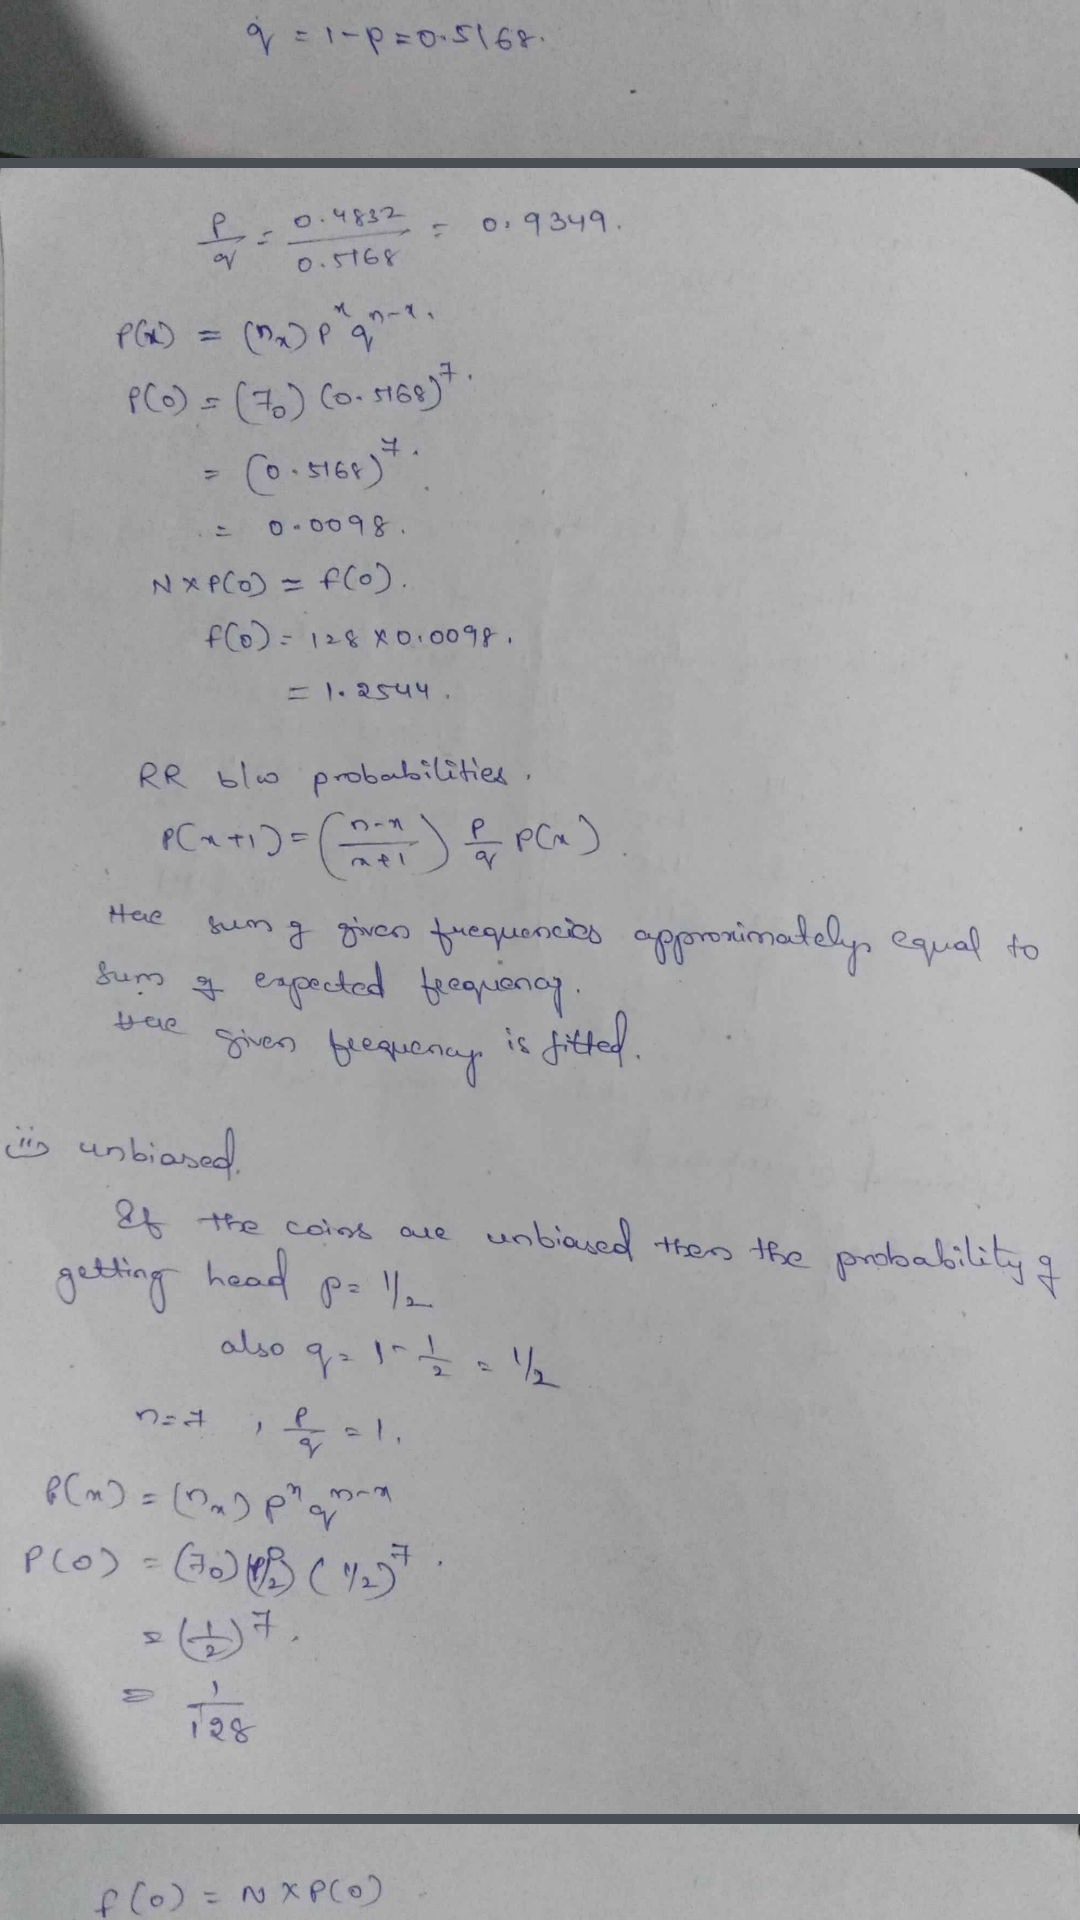 q = 1-p = 0.5168.
p/q = 0.4832/0.5168 = 0.9349.
P(x) = (n x) p^x q^n-x.
P(0) = (7 0) (0.5168)^7.
= (0.5168)^7.
= 0.0098.
N x P(0) = f(0).
f(0) = 128 x 0.0098.
= 1.2544.
RR b/w probabilities.
P(x+1) = (n-x/x+1) p/q P(x).
Here sum of given frequencies approximately equal to
sum of expected frequency.
Here given frequency is fitted.
iii) unbiased.
If the coins are unbiased then the probability of
getting head p = 1/2
also q = 1 - 1/2 = 1/2
n = 7 , p/q = 1.
P(x) = (n x) p^x q^n-x
P(0) = (7 0) (1/2)^0 (1/2)^7.
= (1/2)^7.
= 1/128
f(0) = N x P(0)